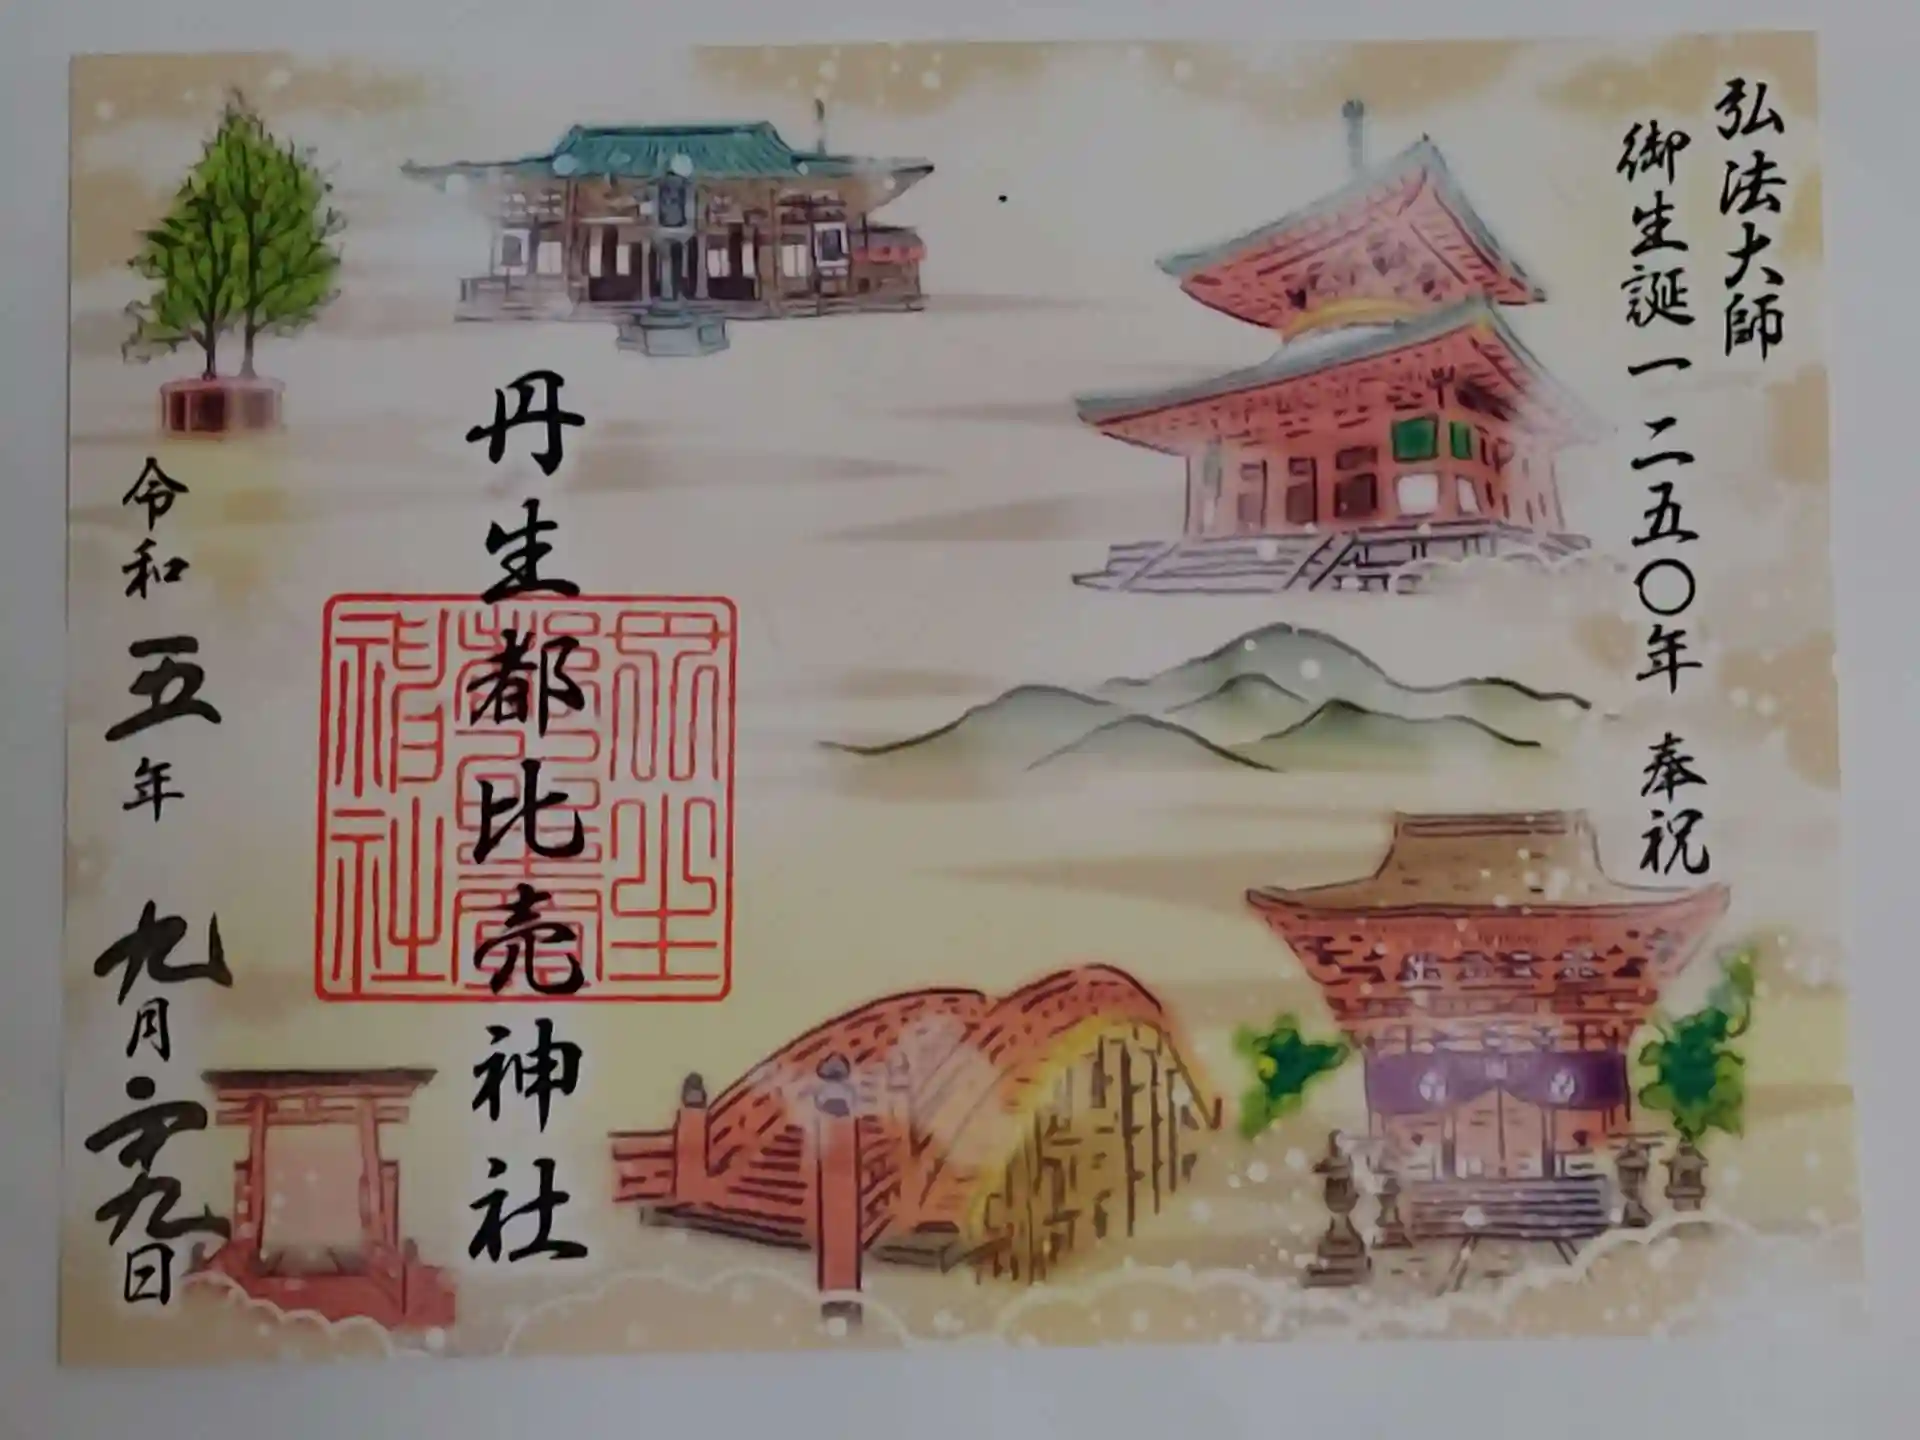 弘法大師
御生誕一二五〇年 奉祝
丹生都比売神社
令和五年 九月二十九日